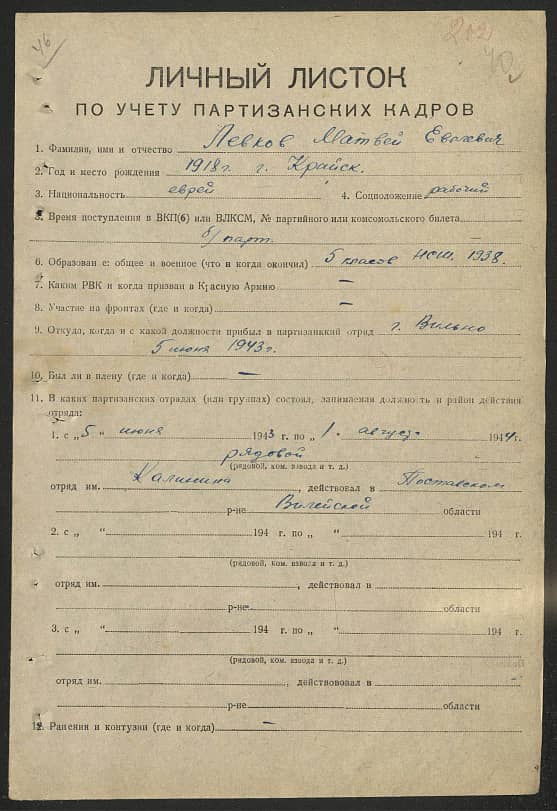 46
202
40
ЛИЧНЫЙ ЛИСТОК
ПО УЧЕТУ ПАРТИЗАНСКИХ КАДРОВ
1. Фамилия, имя и отчество Левков Матвей
2. Год и место рождения 1918г. г. Крайск.
3. Национальность еврей 4. Соцположение рабочий
5. Время поступления в ВКП(б) или ВЛКСМ, № партийного или комсомольского билета
б/парт. —
6. Образование: общее и военное (что и когда окончил) 5 класов НСШ. 1938.
7. Каким РВК и когда призван в Красную Армию —
8. Участие на фронтах (где и когда) —
9. Откуда, когда и с какой должности прибыл в партизанский отряд г. Вильно
5 июня 1943г.
10. Был ли в плену (где и когда) —
11. В каких партизанских отрядах (или группах) состоял, занимаемая должность и район действия
отряда:
1. с „5 “ июня 1943 г. по „ 1. “ август 1944 г.
рядовой
(рядовой, ком. взвода и т. д.)
отряд им. Калинина, действовал в Поставском
р-не Вилейской области
2. с „ “ 194 г. по „ “ 194 г.
(рядовой, ком. взвода и т. д.)
отряд им. , действовал в
р-не области
3. с „ “ 194 г. по „ “ 194 г.
(рядовой, ком. взвода и т. д.)
отряд им. , действовал в
р-не области
12. Ранения и контузии (где и когда) —